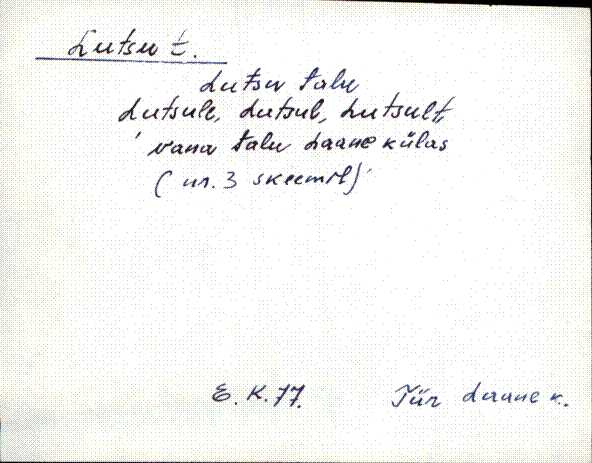 Lutsu t.
Lutsu talu
Lutsule, Lutsul, Lutsult,
vana talu Laane külas
(nr. 3 skeemil)
E. K. 77.
Tür Laane k.